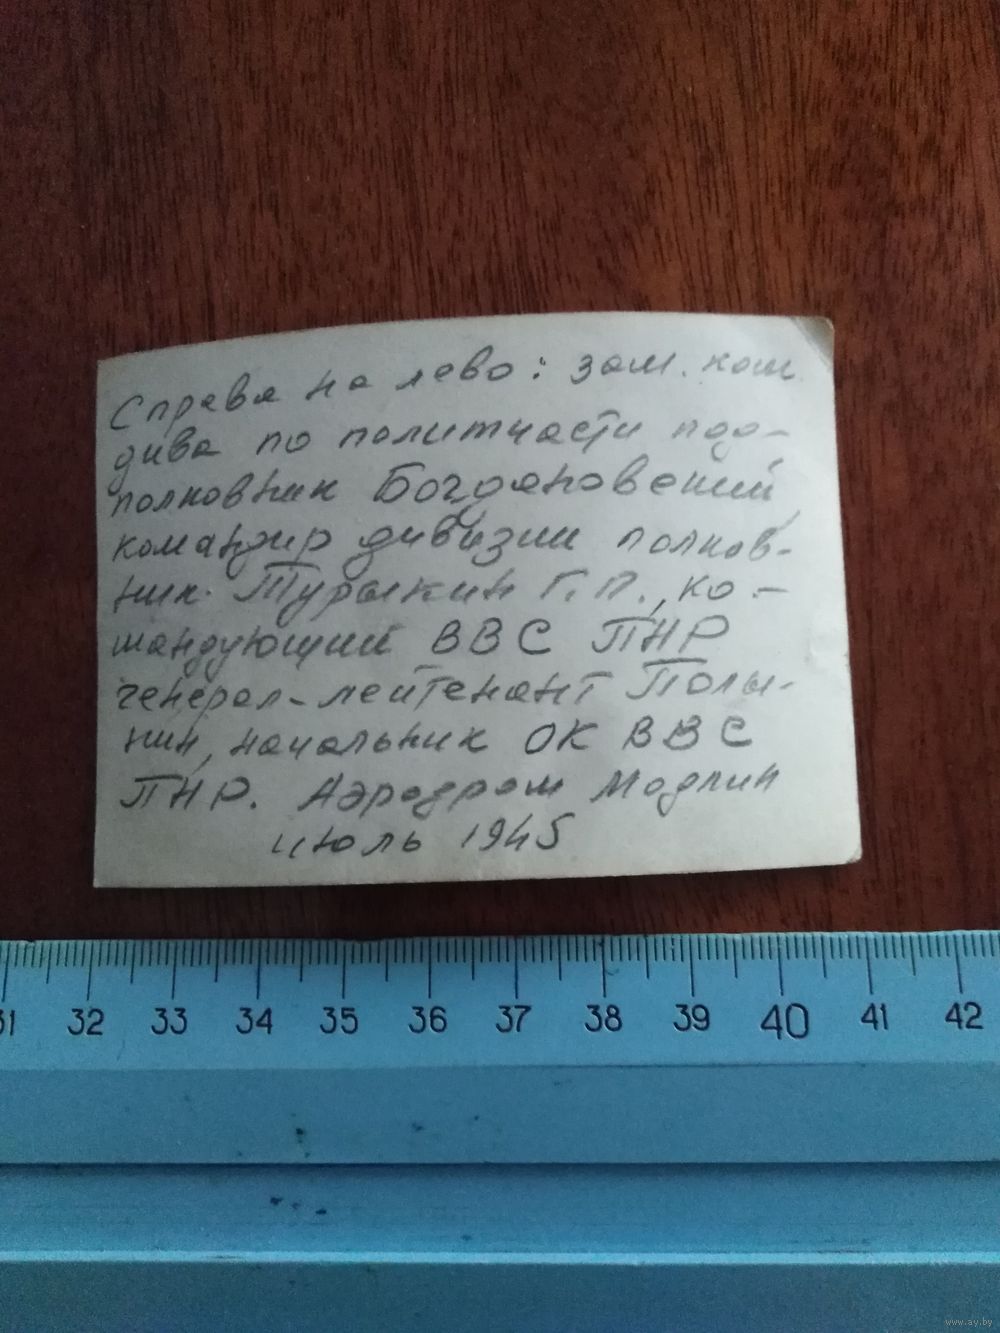 Справа на лево: зам. ком.
дива по политчасти под-
полковник Богдановский,
командир дивизии полков-
ник Турыкин Г.П., ко-
мандующий ВВС ПНР
генерал-лейтенант Полы-
нин, начальник ОК ВВС
ПНР. Аэродром Модлин
июль 1945
31 32 33 34 35 36 37 38 39 40 41 42
www.ay.by